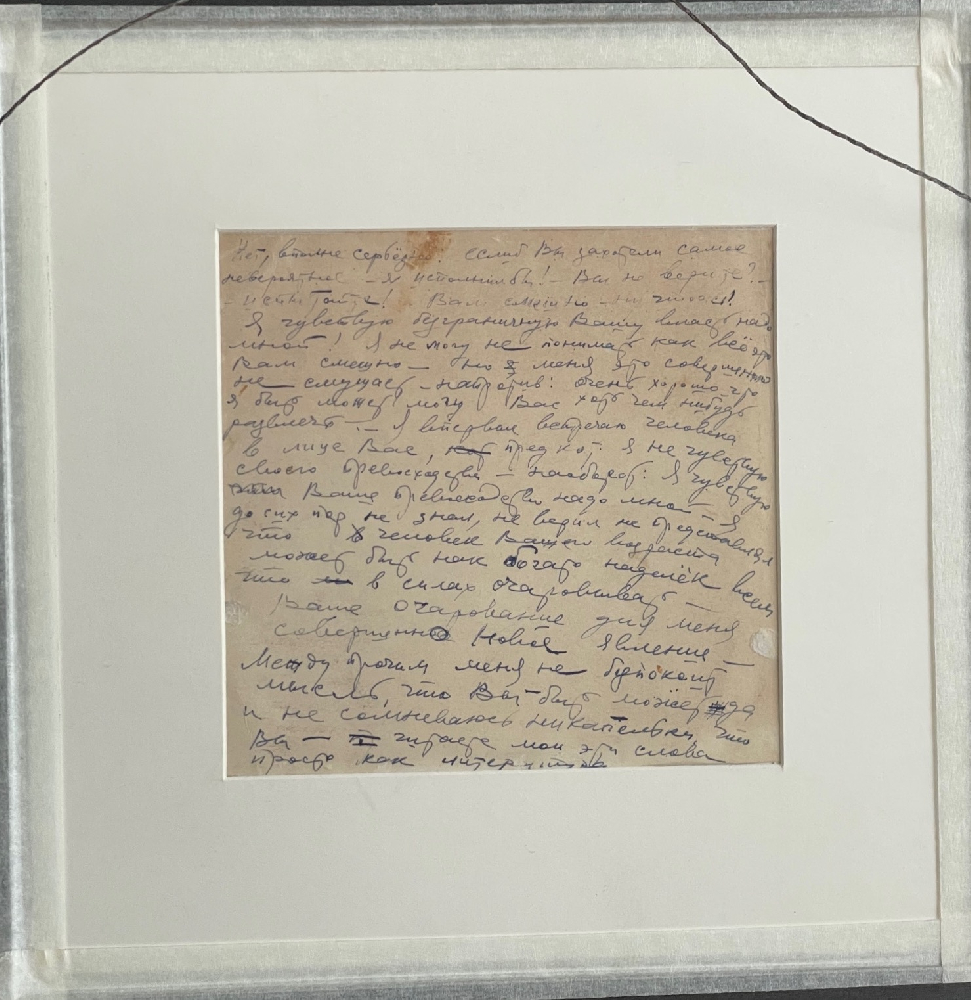 Нет, вполне серьёзно! если б Вы захотели самое
невероятное – я исполнил бы! – Вы не верите? –
– испытайте! – Вам смешно – ни чтож!
Я чувствую безграничную Вашу власть надо
мной! Я не могу не понимать как всё это
Вам смешно – но меня это совершенно
не смущает – напротив: очень хорошо что
я быть может могу Вас хоть чем нибудь
развлечь – Я впервые встречаю человека
в лице Вас, пред кот. я не чувствую
своего превосходства – наоборот: Я чувствую
Ваше превосходство надо мной – Я
до сих пор не знал, не верил не представлял
что человек Вашего возраста
может быть так богато наделён всем
что в силах очаровывать –
Ваше очарование для меня
совершенно новое явление –
Между прочим меня не
мысль, что Вы быть может да
и не сомневаюсь ни капельки, что
Вы – читаете мои эти слова
просто как литература